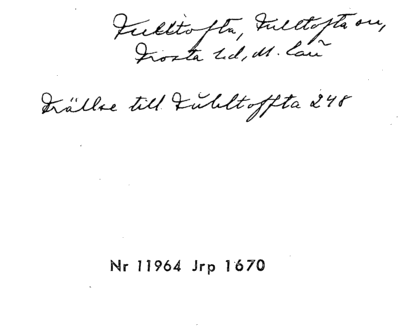 Fulltofta, Fulltofta sn,
Frosta hd, M. län
Frälse till Fŭhltoffta 248
Nr 11964 Jrp 1670